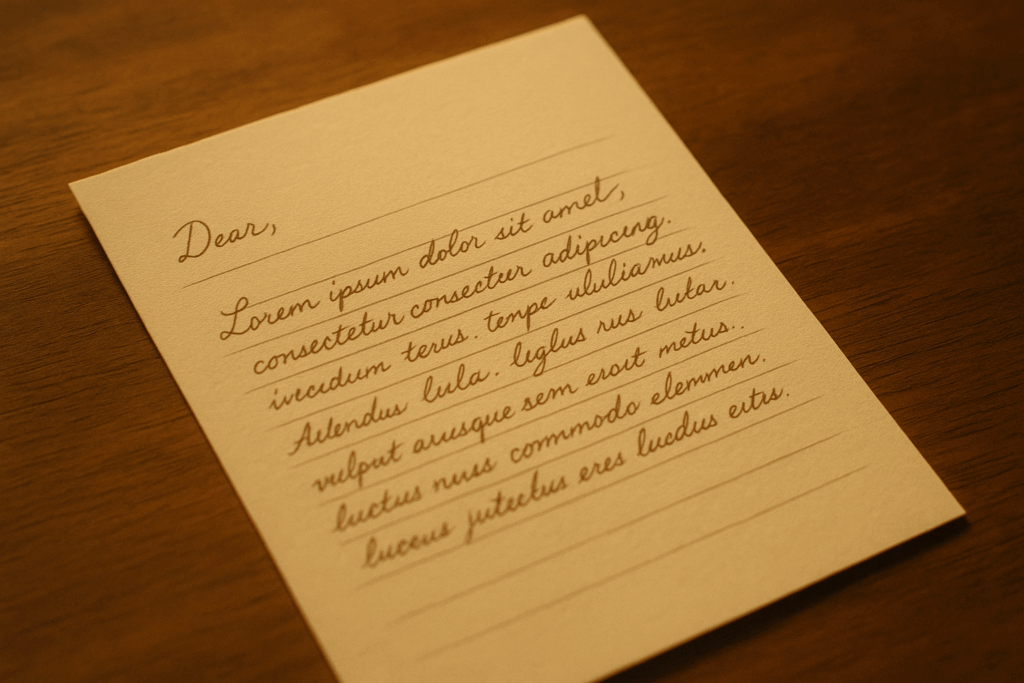 Dear,
Lorem ipsum dolor sit amel,
consectetur consecteur adipicing.
ivecidum terus. tenpe ululiamus.
lula. leglus rus lutar.
vulput arusque sem eroit metus..
luctus nuss commodo elemmen.
luceus jutectus eres lucdus